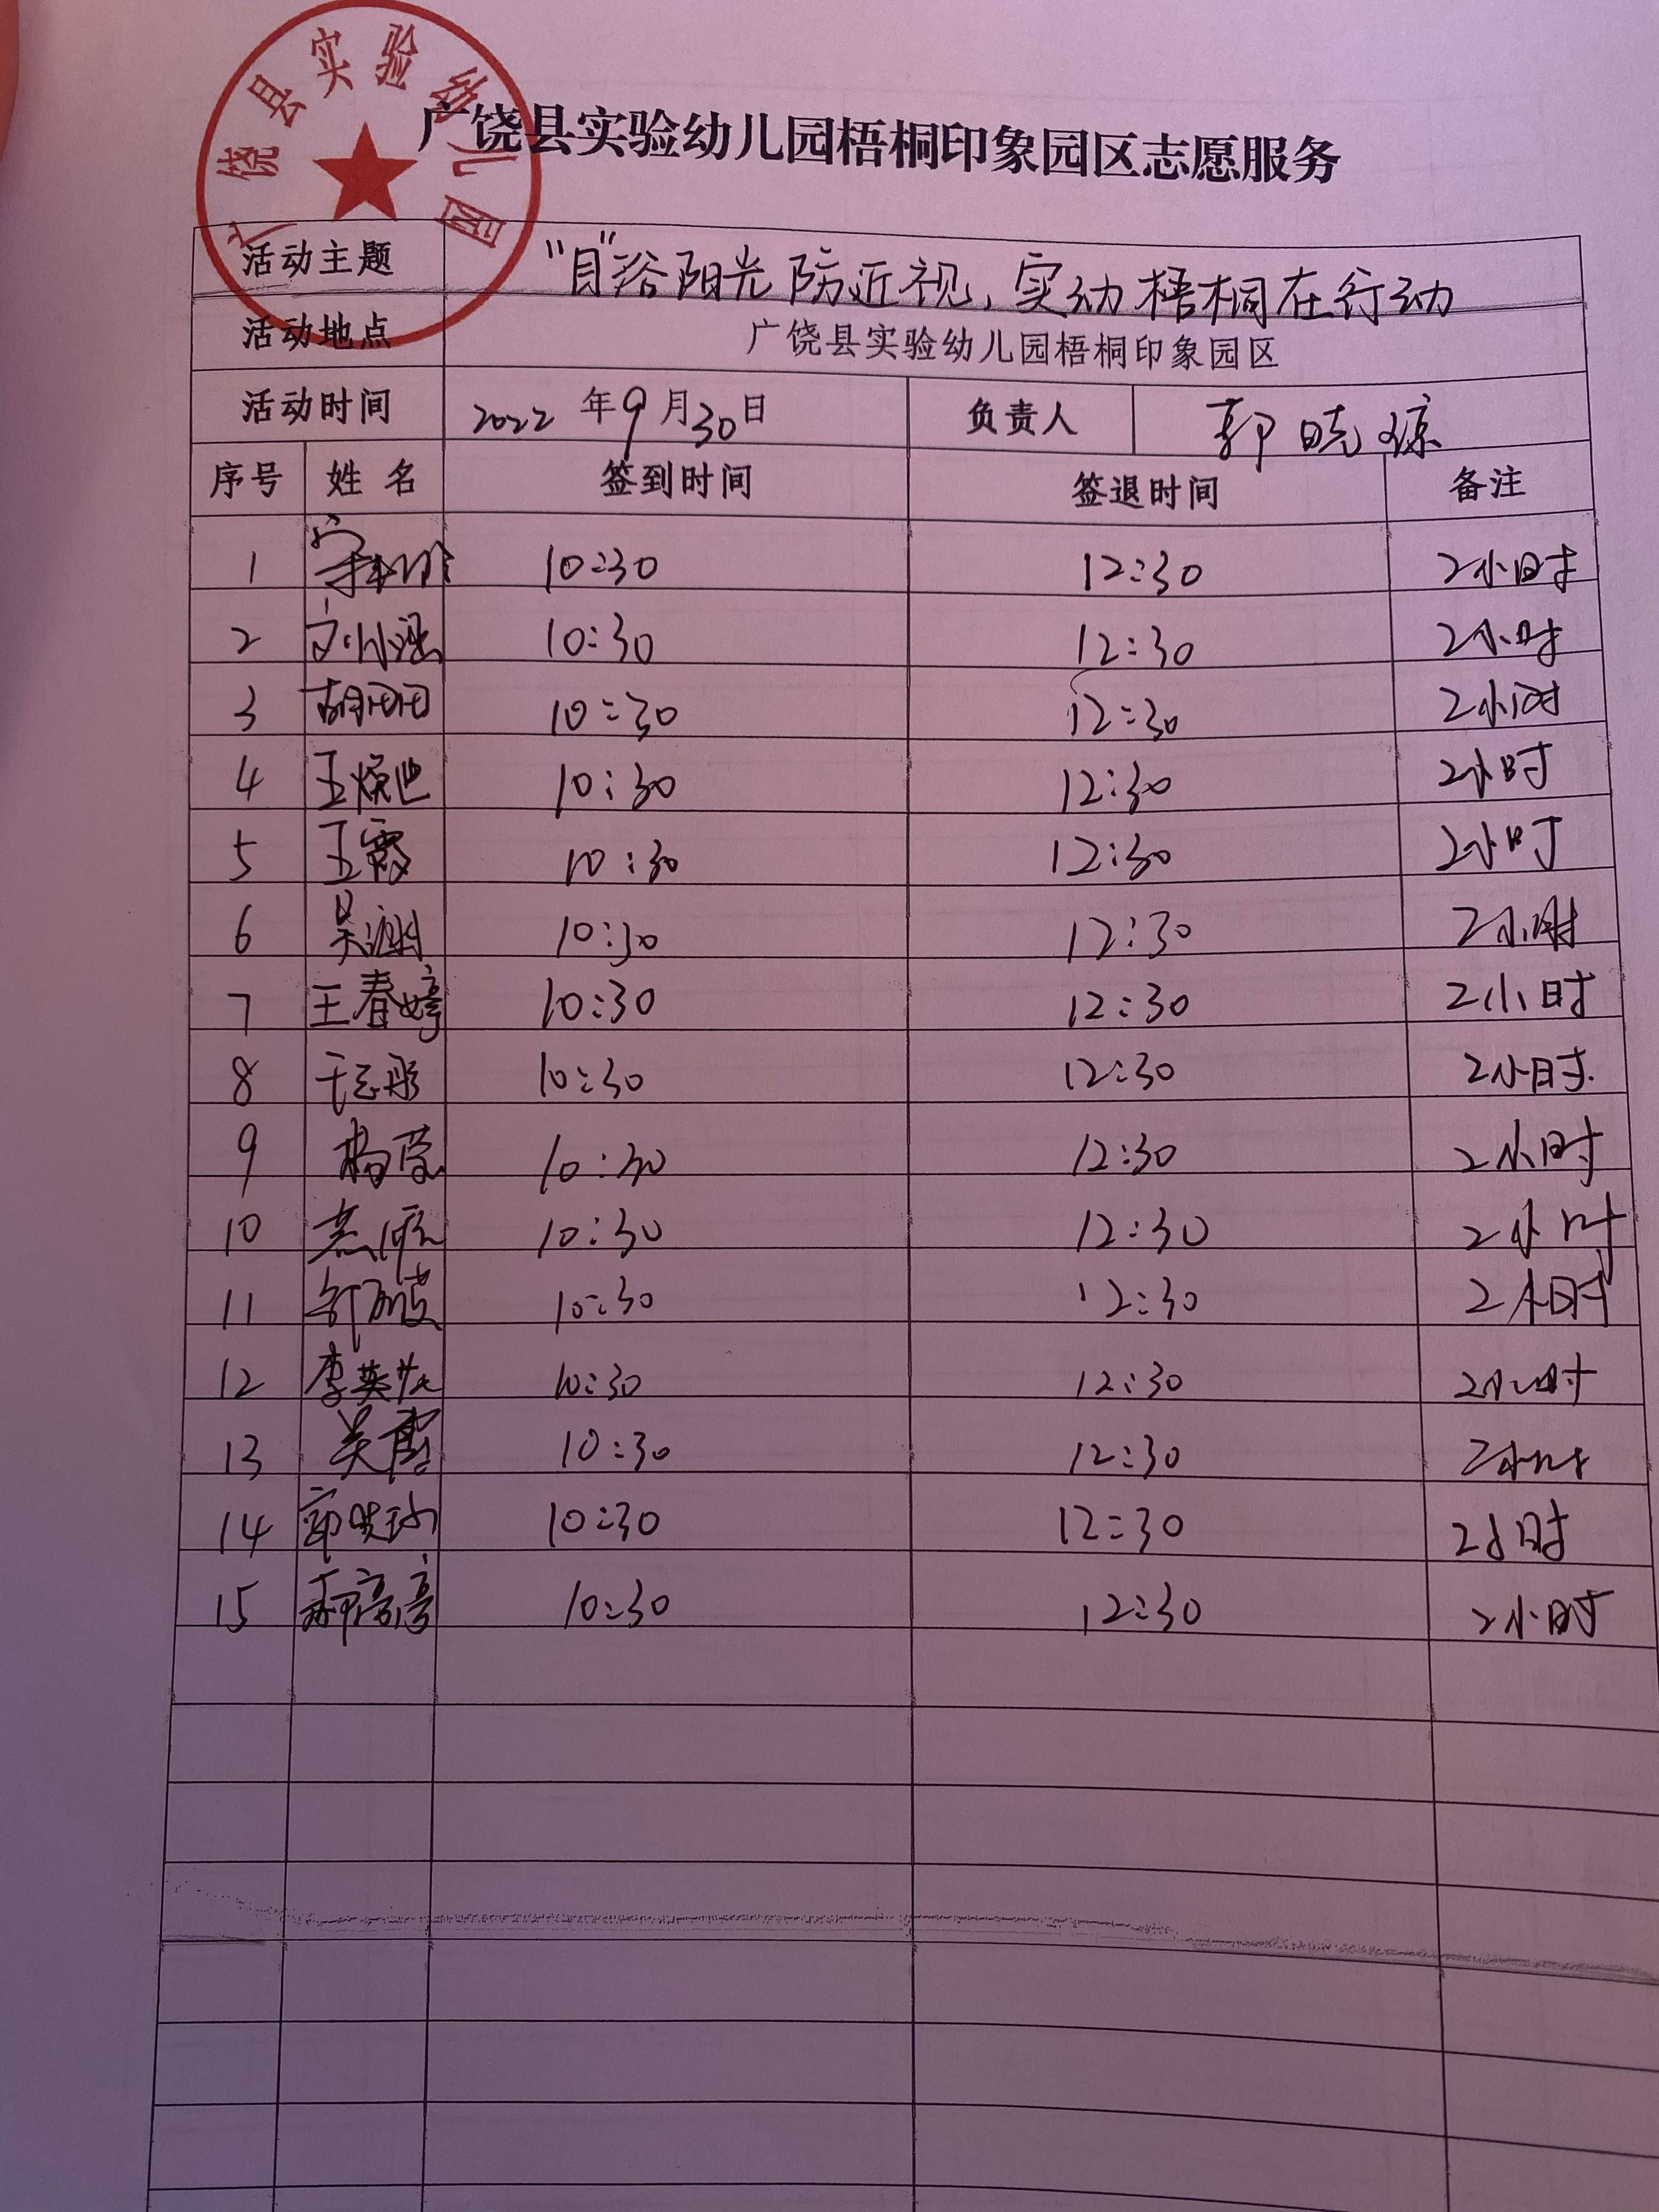 广饶县实验幼儿园
广饶县实验幼儿园梧桐印象园区志愿服务
活动主题 “目”浴阳光防近视，实幼梧桐在行动
活动地点 广饶县实验幼儿园梧桐印象园区
活动时间 2022年9月30日 负责人 郭晓琼
序号 姓名 签到时间 签退时间 备注
1 10:30 12:30 2小时
2 10:30 12:30 2小时
3 胡田田 10:30 12:30 2小时
4 10:30 12:30 2小时
5 王霞 10:30 12:30 2小时
6 10:30 12:30 2小时
7 王春婷 10:30 12:30 2小时
8 于志彤 10:30 12:30 2小时
9 10:30 12:30 2小时
10 10:30 12:30 2小时
11 10:30 12:30 2小时
12 10:30 12:30 2小时
13 10:30 12:30 2小时
14 10:30 12:30 2小时
15 10:30 12:30 2小时